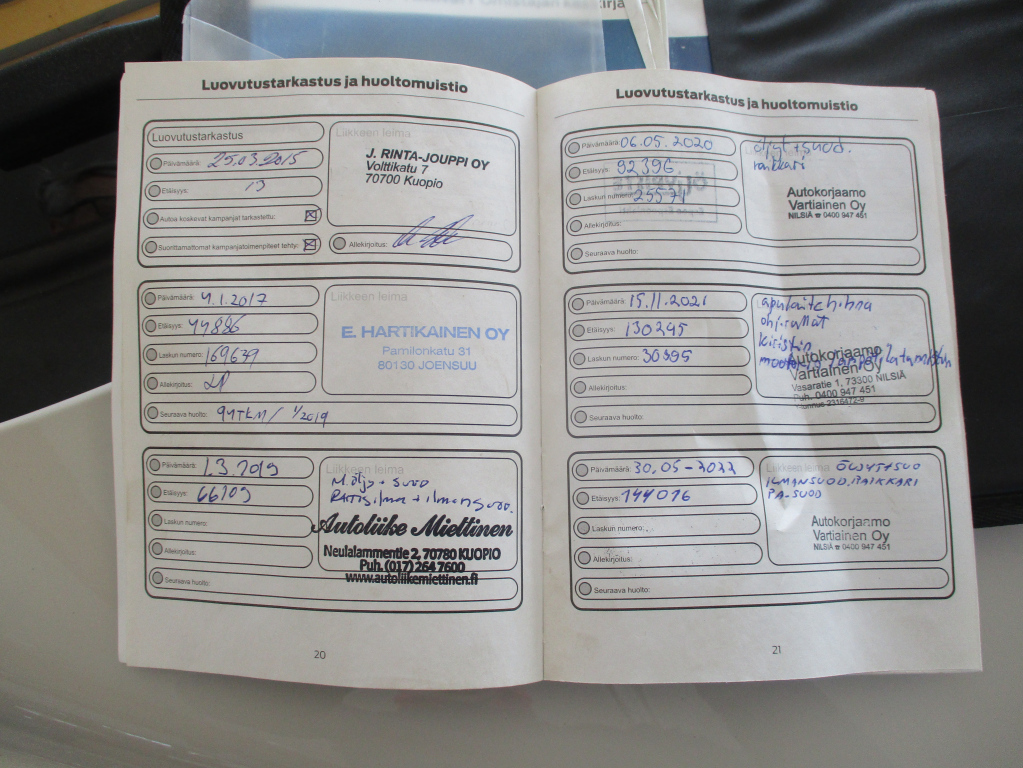 Luovutustarkastus ja huoltomuistio
Luovutustarkastus
Päivämäärä: 25.03.2015
Etäisyys: 13
Autoa koskevat kampanjat tarkastettu:
Suorittamattomat kampanjatoimenpiteet tehty:
Liikkeen leima
J. RINTA-JOUPPI OY
Volttikatu 7
70700 Kuopio
Allekirjoitus:
Päivämäärä: 4.1.2017
Etäisyys: 44886
Laskun numero: 169649
Allekirjoitus:
Seuraava huolto: 94TKM/ 1/2019
Liikkeen leima
E. HARTIKAINEN OY
Pamilonkatu 31
80130 JOENSUU
Päivämäärä: 1.3.2019
Etäisyys: 66109
Laskun numero:
Allekirjoitus:
Seuraava huolto:
Liikkeen leima
M.öljy + suod
Raitisilma + ilmansuod.
Autoliike Miettinen
Neulalammentie 2, 70780 KUOPIO
Puh. (017) 264 7600
www.autoliikemiettinen.fi
20
Luovutustarkastus ja huoltomuistio
Päivämäärä: 06.05.2020
Etäisyys: 92396
Laskun numero: 25571
Allekirjoitus:
Seuraava huolto:
öljyt+suod.
raikkari
Autokorjaamo
Vartiainen Oy
NILSIÄ ☎ 0400 947 451
Päivämäärä: 15.11.2021
Etäisyys: 130245
Laskun numero: 30395
Allekirjoitus:
Seuraava huolto:
apulaitehihna
ohj.rullat
kiristin
Autokorjaamo
Vartiainen Oy
Vasaratie 1, 73300 NILSIÄ
Puh. 0400 947 451
Päivämäärä: 30.05-2022
Etäisyys: 144016
Laskun numero:
Allekirjoitus:
Seuraava huolto:
Liikkeen leima ÖLJYT+SUO
ILMANSUOD, RAIKKARI
PA-SUOD
Autokorjaamo
Vartiainen Oy
NILSIÄ ☎ 0400 947 451
21